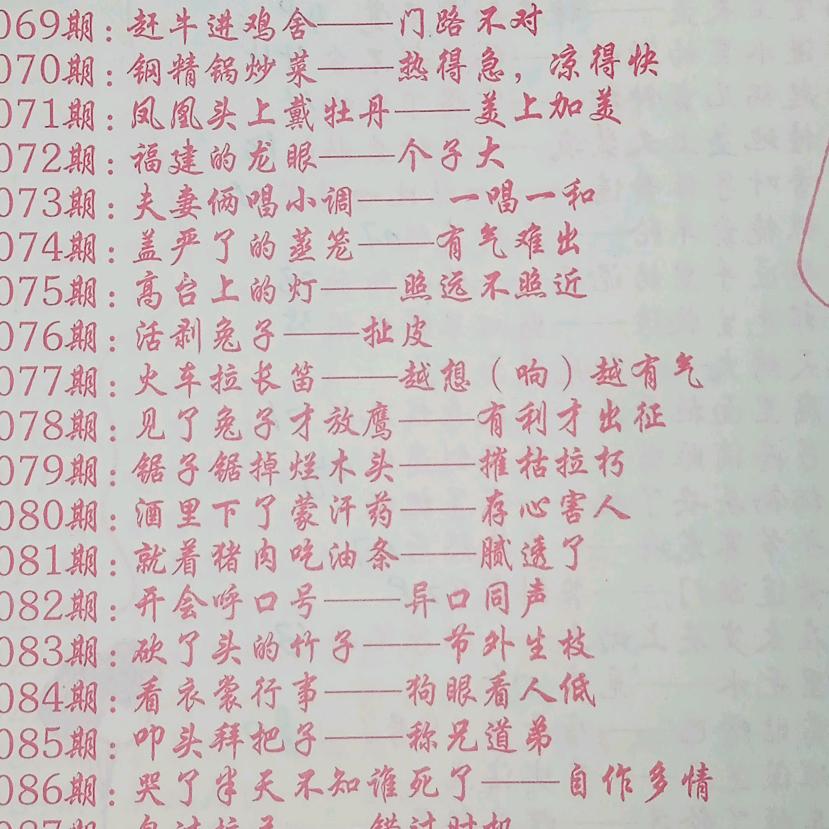 069期：赶牛进鸡舍——门路不对
070期：钢精锅炒菜——热得急，凉得快
071期：凤凰头上戴牡丹——美上加美
072期：福建的龙眼——个子大
073期：夫妻俩唱小调——一唱一和
074期：盖严了的蒸笼——有气难出
075期：高台上的灯——照远不照近
076期：活剥兔子——扯皮
077期：火车拉长笛——越想（响）越有气
078期：见了兔子才放鹰——有利才出征
079期：锯子锯掉烂木头——摧枯拉朽
080期：酒里下了蒙汗药——存心害人
081期：就着猪肉吃油条——腻透了
082期：开会呼口号——异口同声
083期：砍了头的竹子——节外生枝
084期：看衣裳行事——狗眼看人低
085期：叩头拜把子——称兄道弟
086期：哭了半天不知谁死了——自作多情
087期：——错过时机